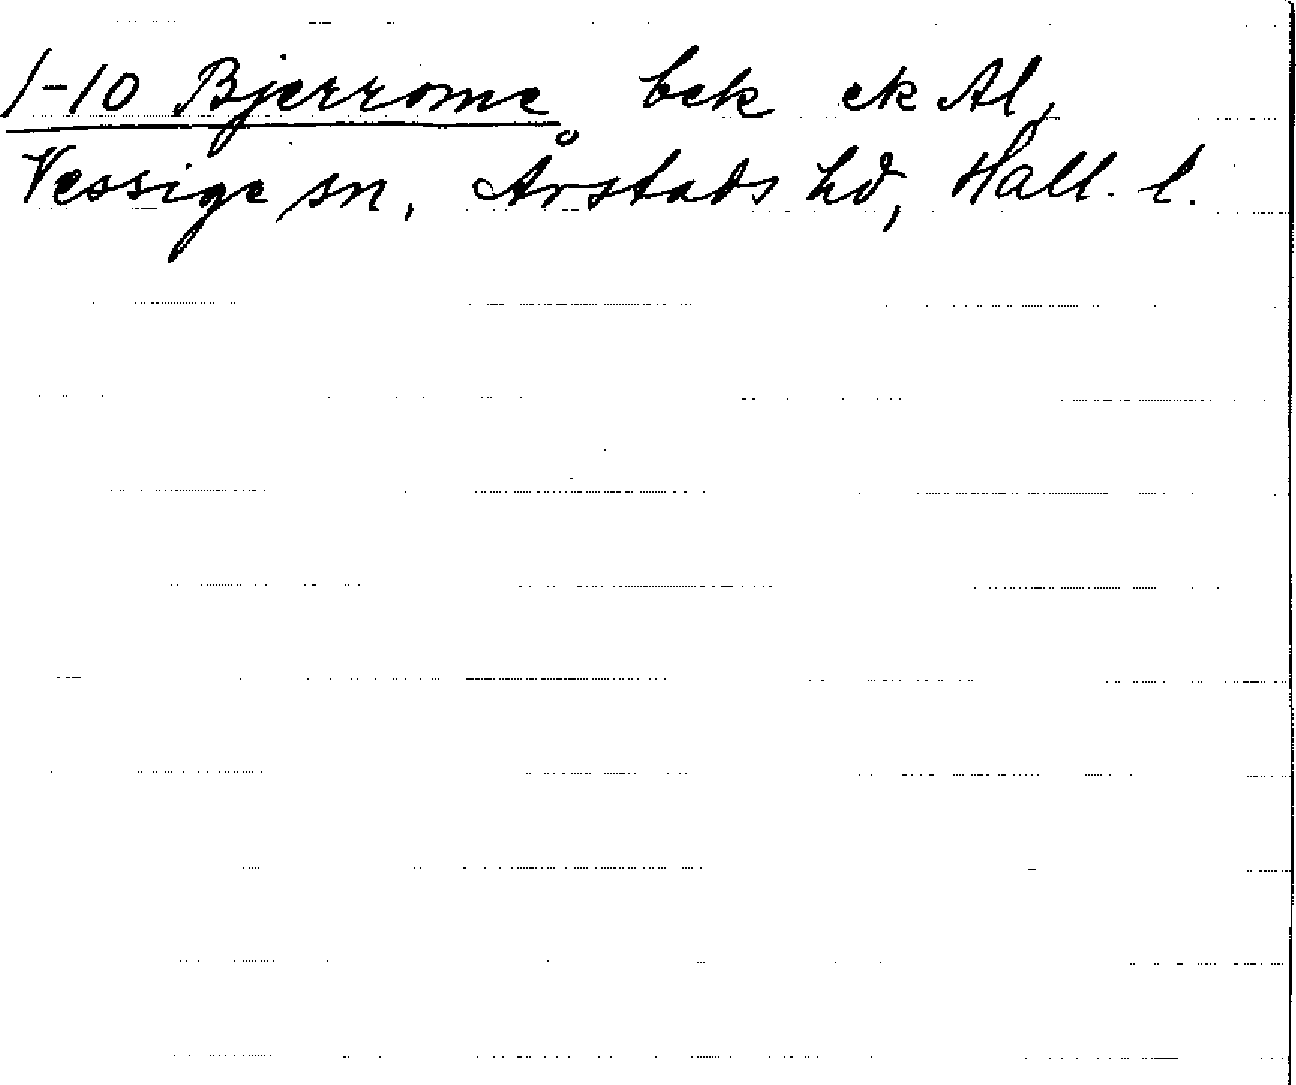 1-10 Bjerrome bek ek Al,
Vessige sn, Årstads hd, Hall. l.